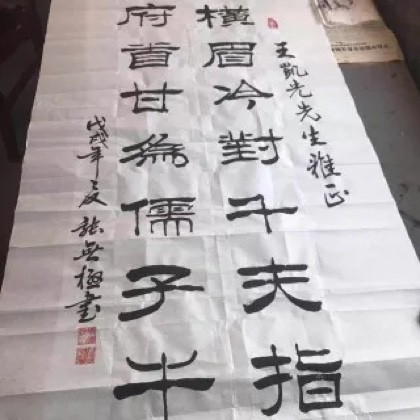 王凱先先生雅正
橫眉冷對千夫指
府首甘為儒子牛
戊戌年夏張無極書